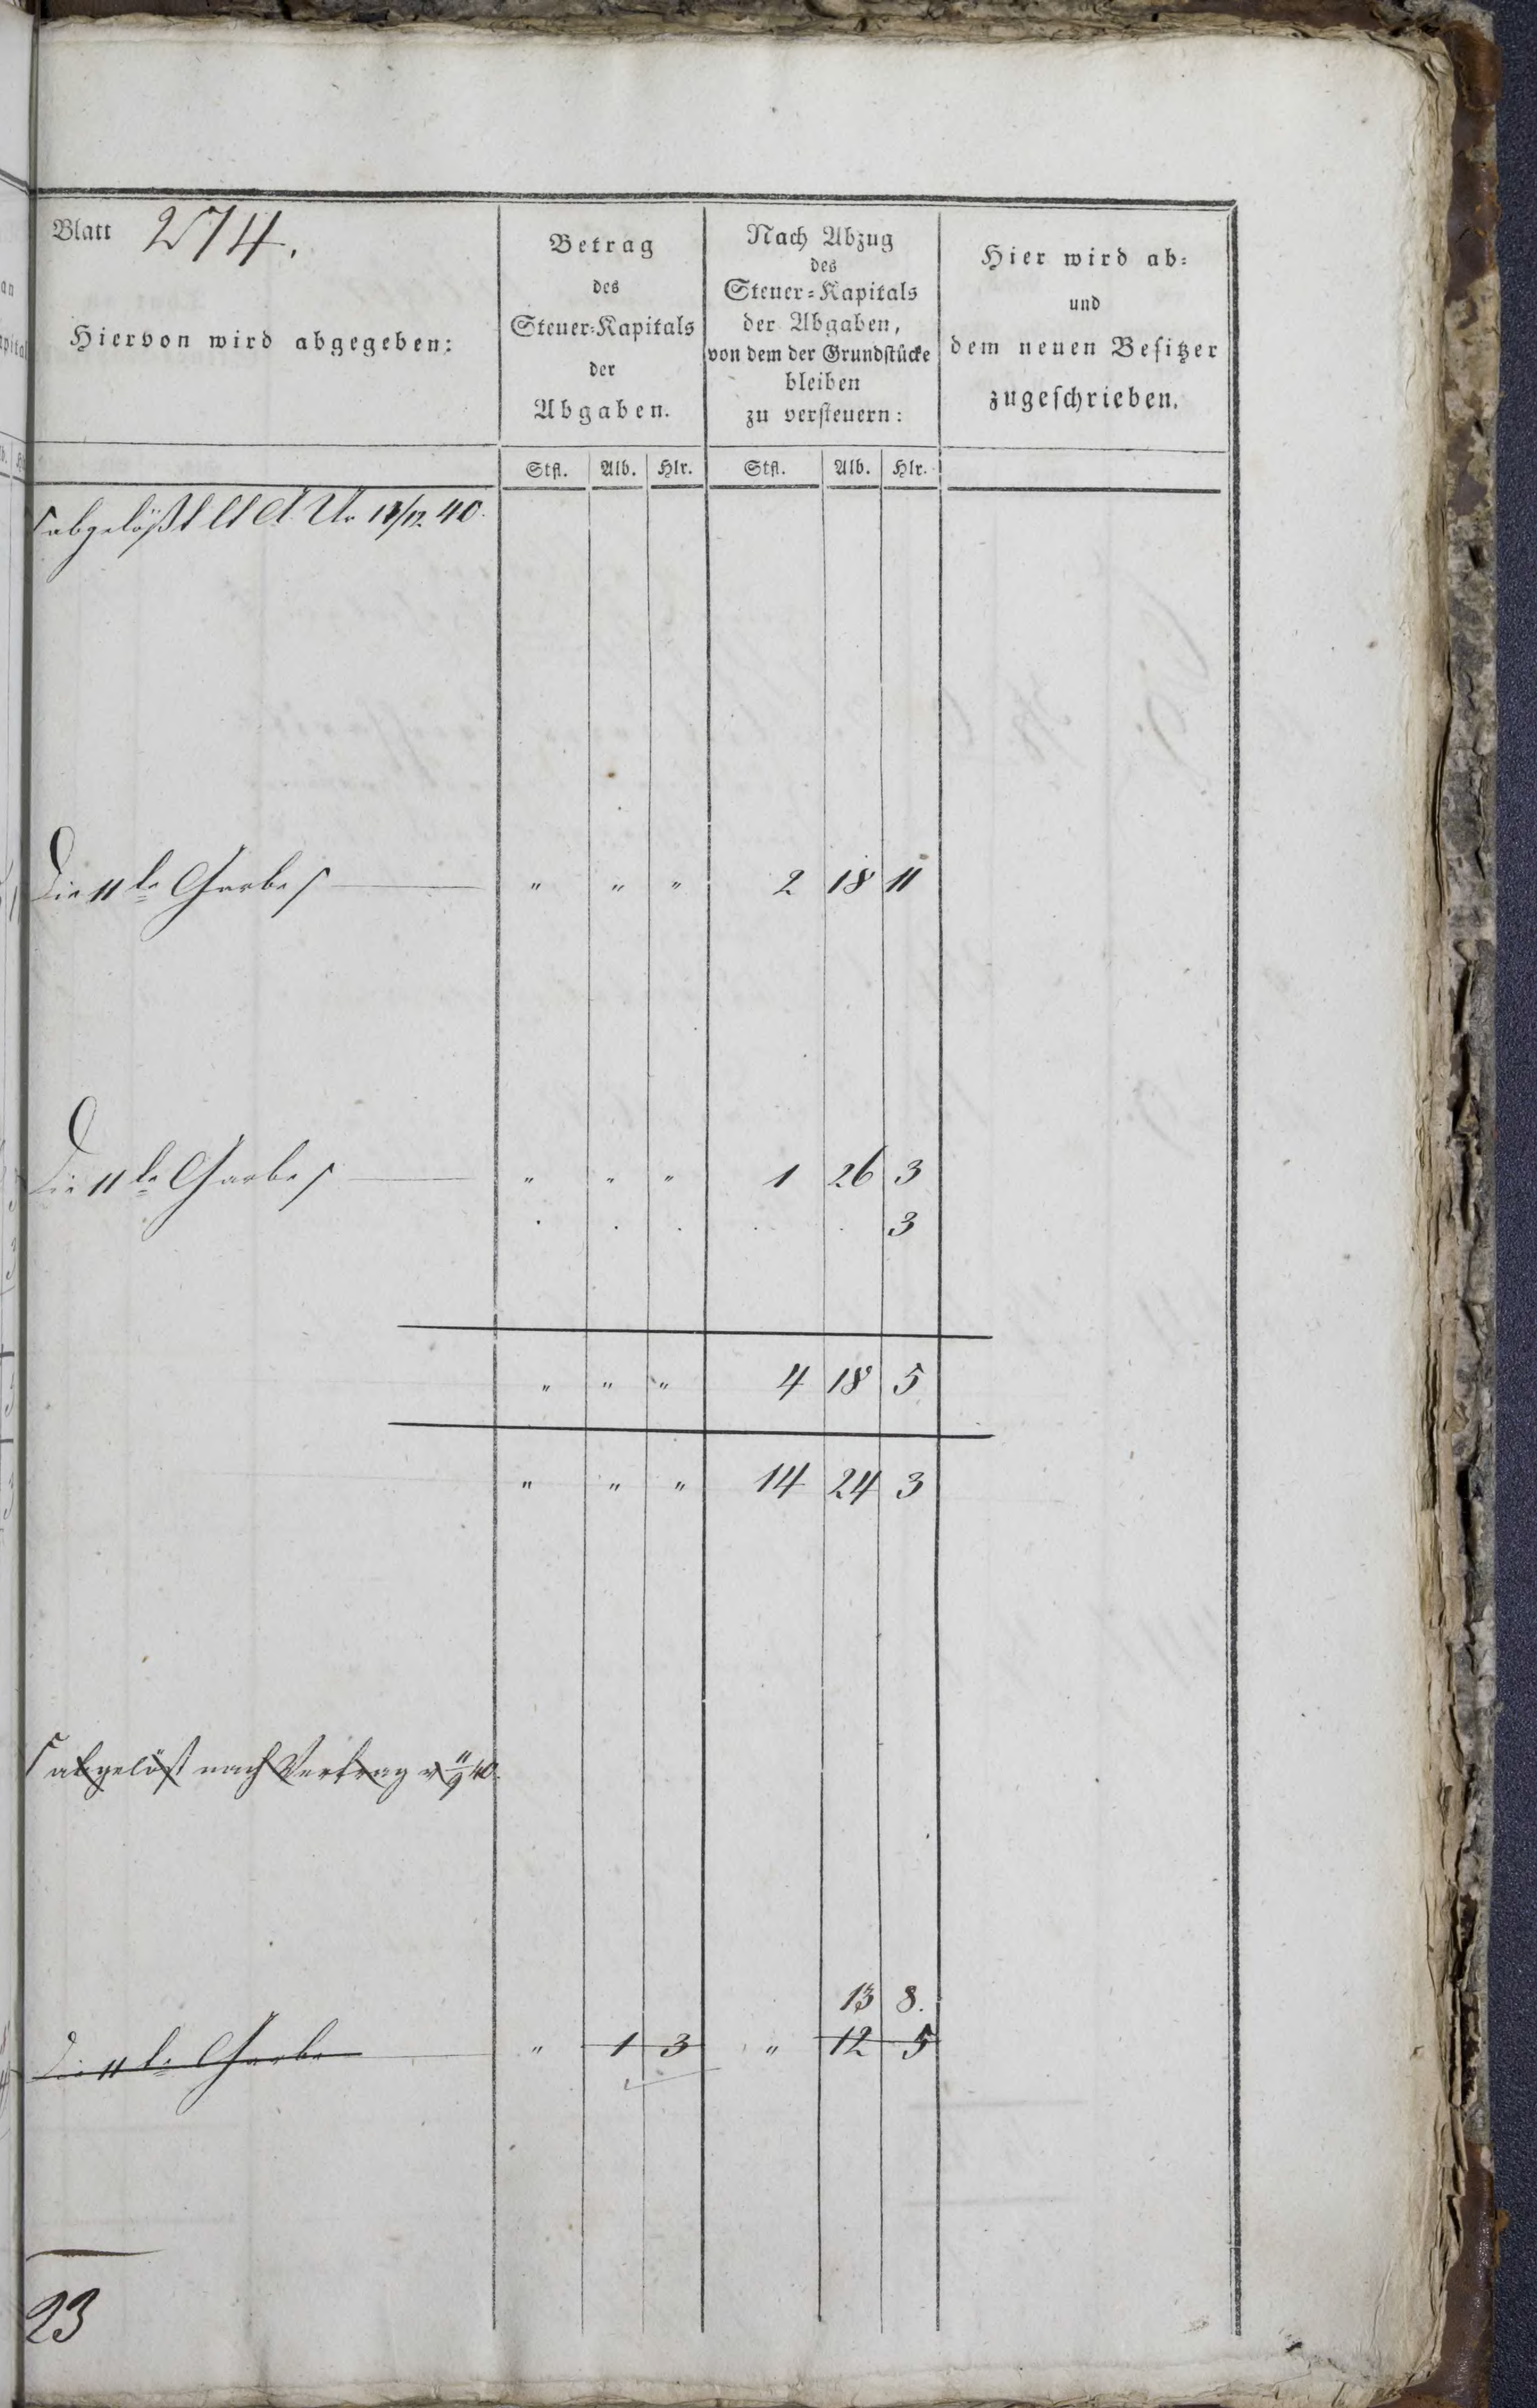 Blatt 274.
Hiervon wird abgegeben:
Betrag
des
Steuer-Kapitals
der
Abgaben.
Nach Abzug
des
Steuer-Kapitals
der Abgaben,
von dem der Grundstücke
bleiben
zu versteuern:
Hier wird ab-
und
dem neuen Besitzer
zugeschrieben.
Stfl. Alb. Hlr. Stfl. Alb. Hlr.
abgelößt 40.
Die 11te Garbe " " " 2 18 11
Die 11te Garbe " " " 1 26 3
. . . . . 3
" " " 4 18 5
" " " 14 24 3
abgelöst nach Vertrag v 11/9 40.
13 8.
Die 11te Garbe " 1 3 " 12 5
23